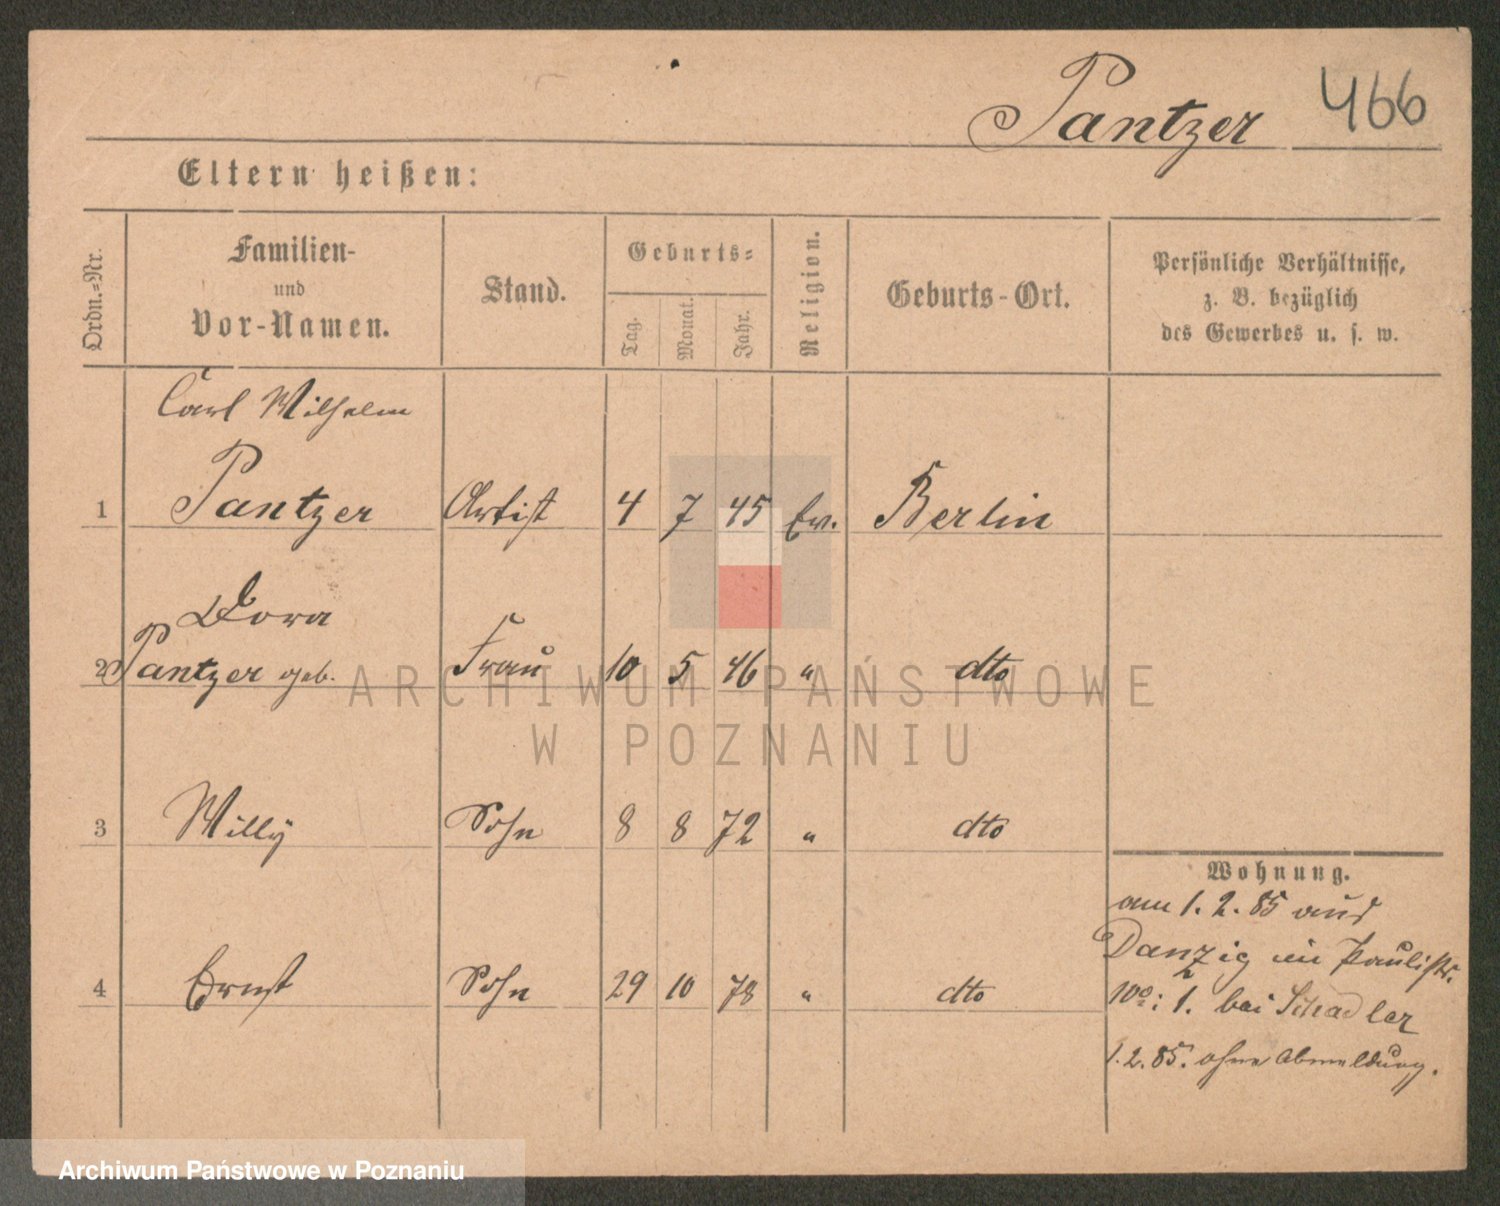 Pantzer 466
Eltern heißen:
Ordn.=Nr.
Familien-
und
Vor-Namen.
Stand.
Geburts=
Tag.
Monat.
Jahr.
Religion.
Geburts-Ort.
Persönliche Verhältnisse,
z. B. bezüglich
des Gewerbes u. s. w.
Carl Wilhelm
1 Pantzer Artist 4 7 45 Ev. Berlin
Dora
2 Pantzer geb. Frau 10 5 46 " dto
3 Willy Sohn 8 8 72 " dto
4 Ernst Sohn 29 10 78 " dto
Wohnung.
am 1. 2. 85 aus
Danzig in Paulistr.
10 : 1. bei Schadler
1. 2. 85. ohne Abmeldung.
ARCHIWUM PAŃSTWOWE
W POZNANIU
Archiwum Państwowe w Poznaniu